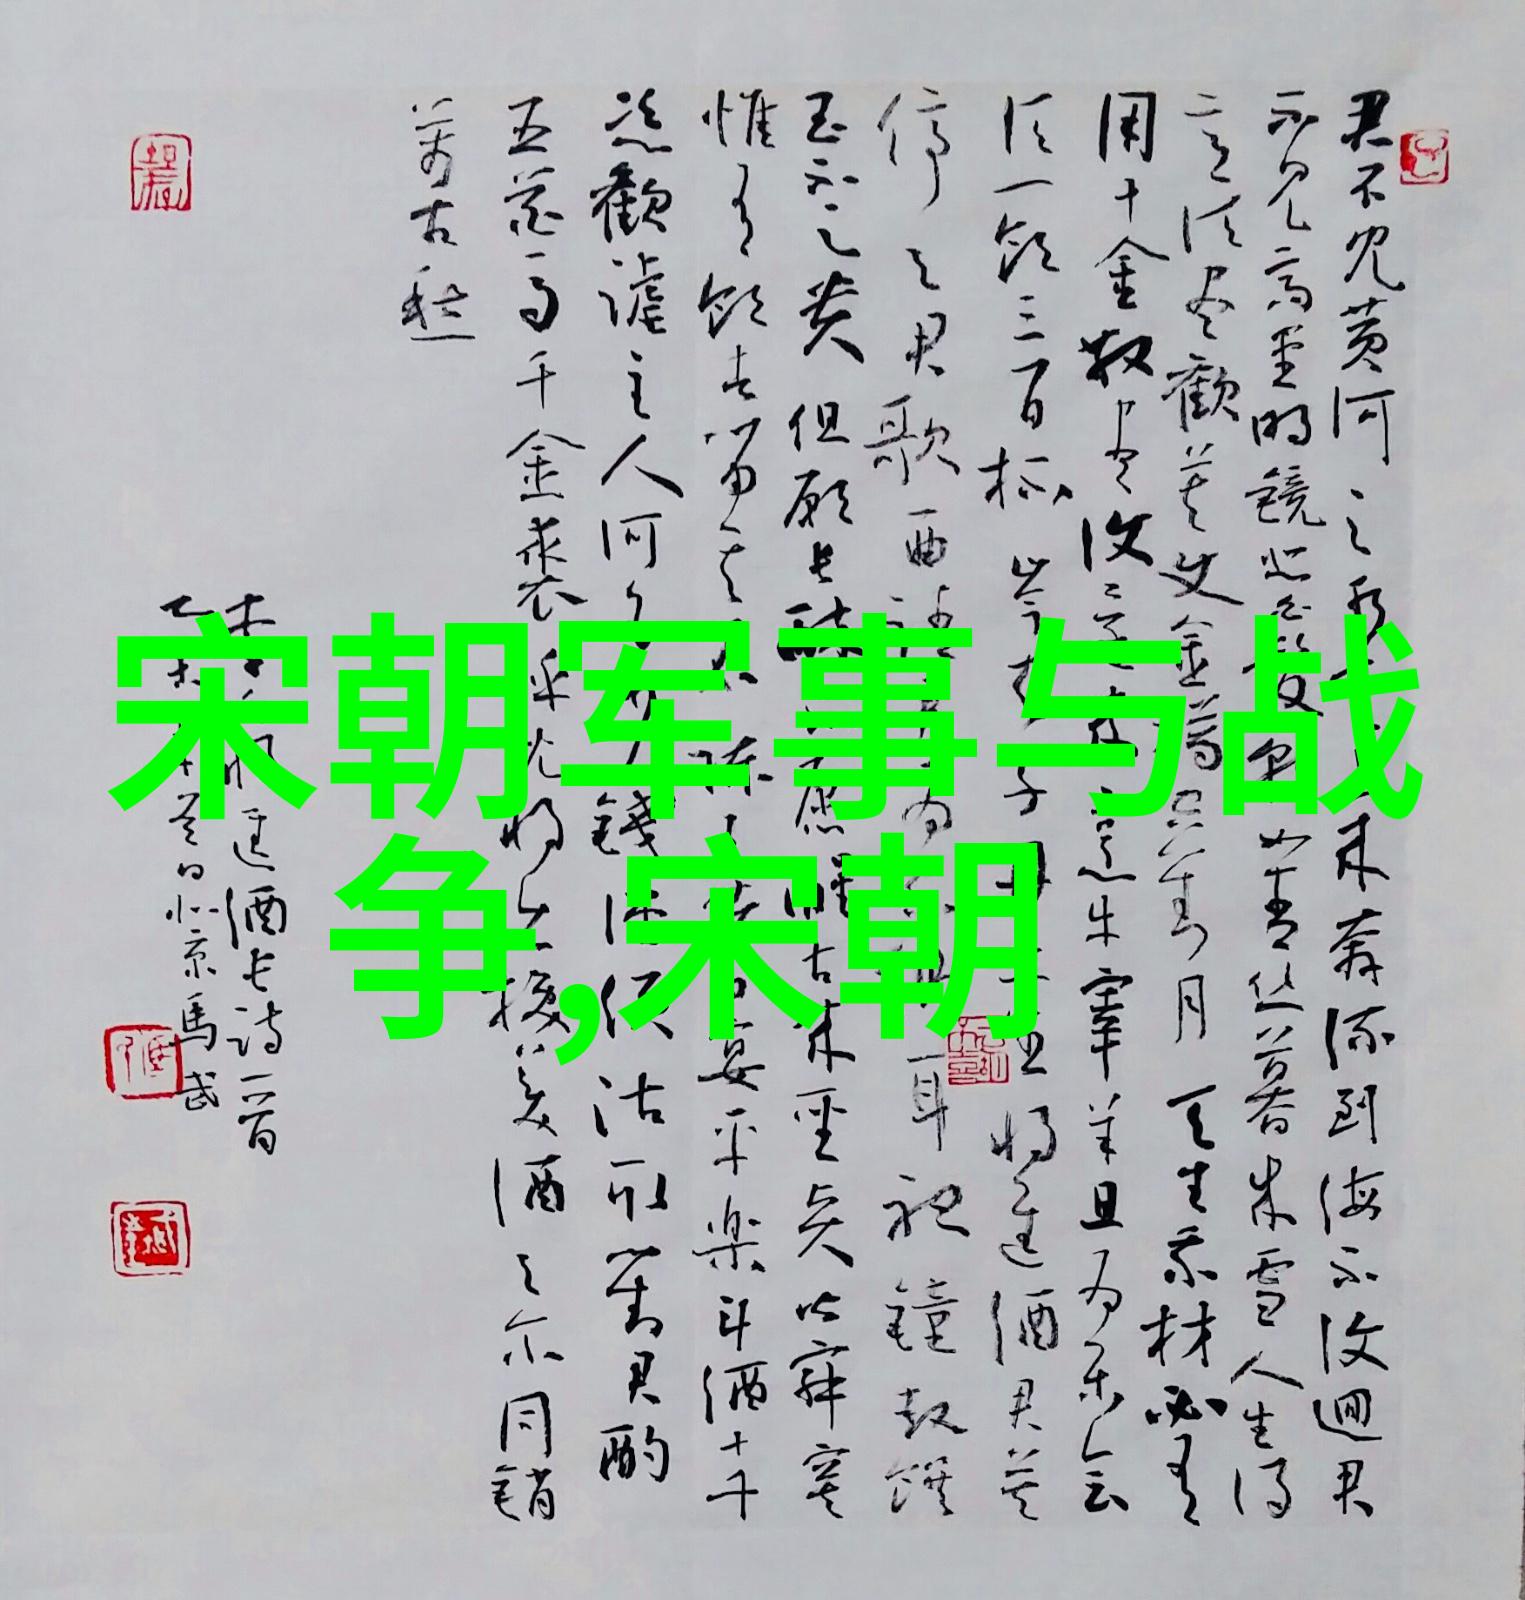 宋朝军事与战
争,宋朝
君不见黄河之水天上来奔流到海不復迴君
不见高堂明镜悲白髮朝如青丝暮成雪人生得
意须尽歡莫使金樽空对月天生我材必有
用千金散尽復还来烹牛宰羊且为乐会
须一饮三百杯岑夫子丹丘生将进酒君莫
停与君歌一曲请君为我倾耳聽鐘鼓饌
玉不足贵但願长醉不愿醒古来圣贤皆寂寞
惟有饮者留其名陈王昔时宴平樂斗酒十千
恣歡謔主人何为言少錢径须沽取对君酌
五花马千金裘呼儿将出换美酒与尔同销
萬古愁
李白将进酒长诗一首
乙未 北京馬武